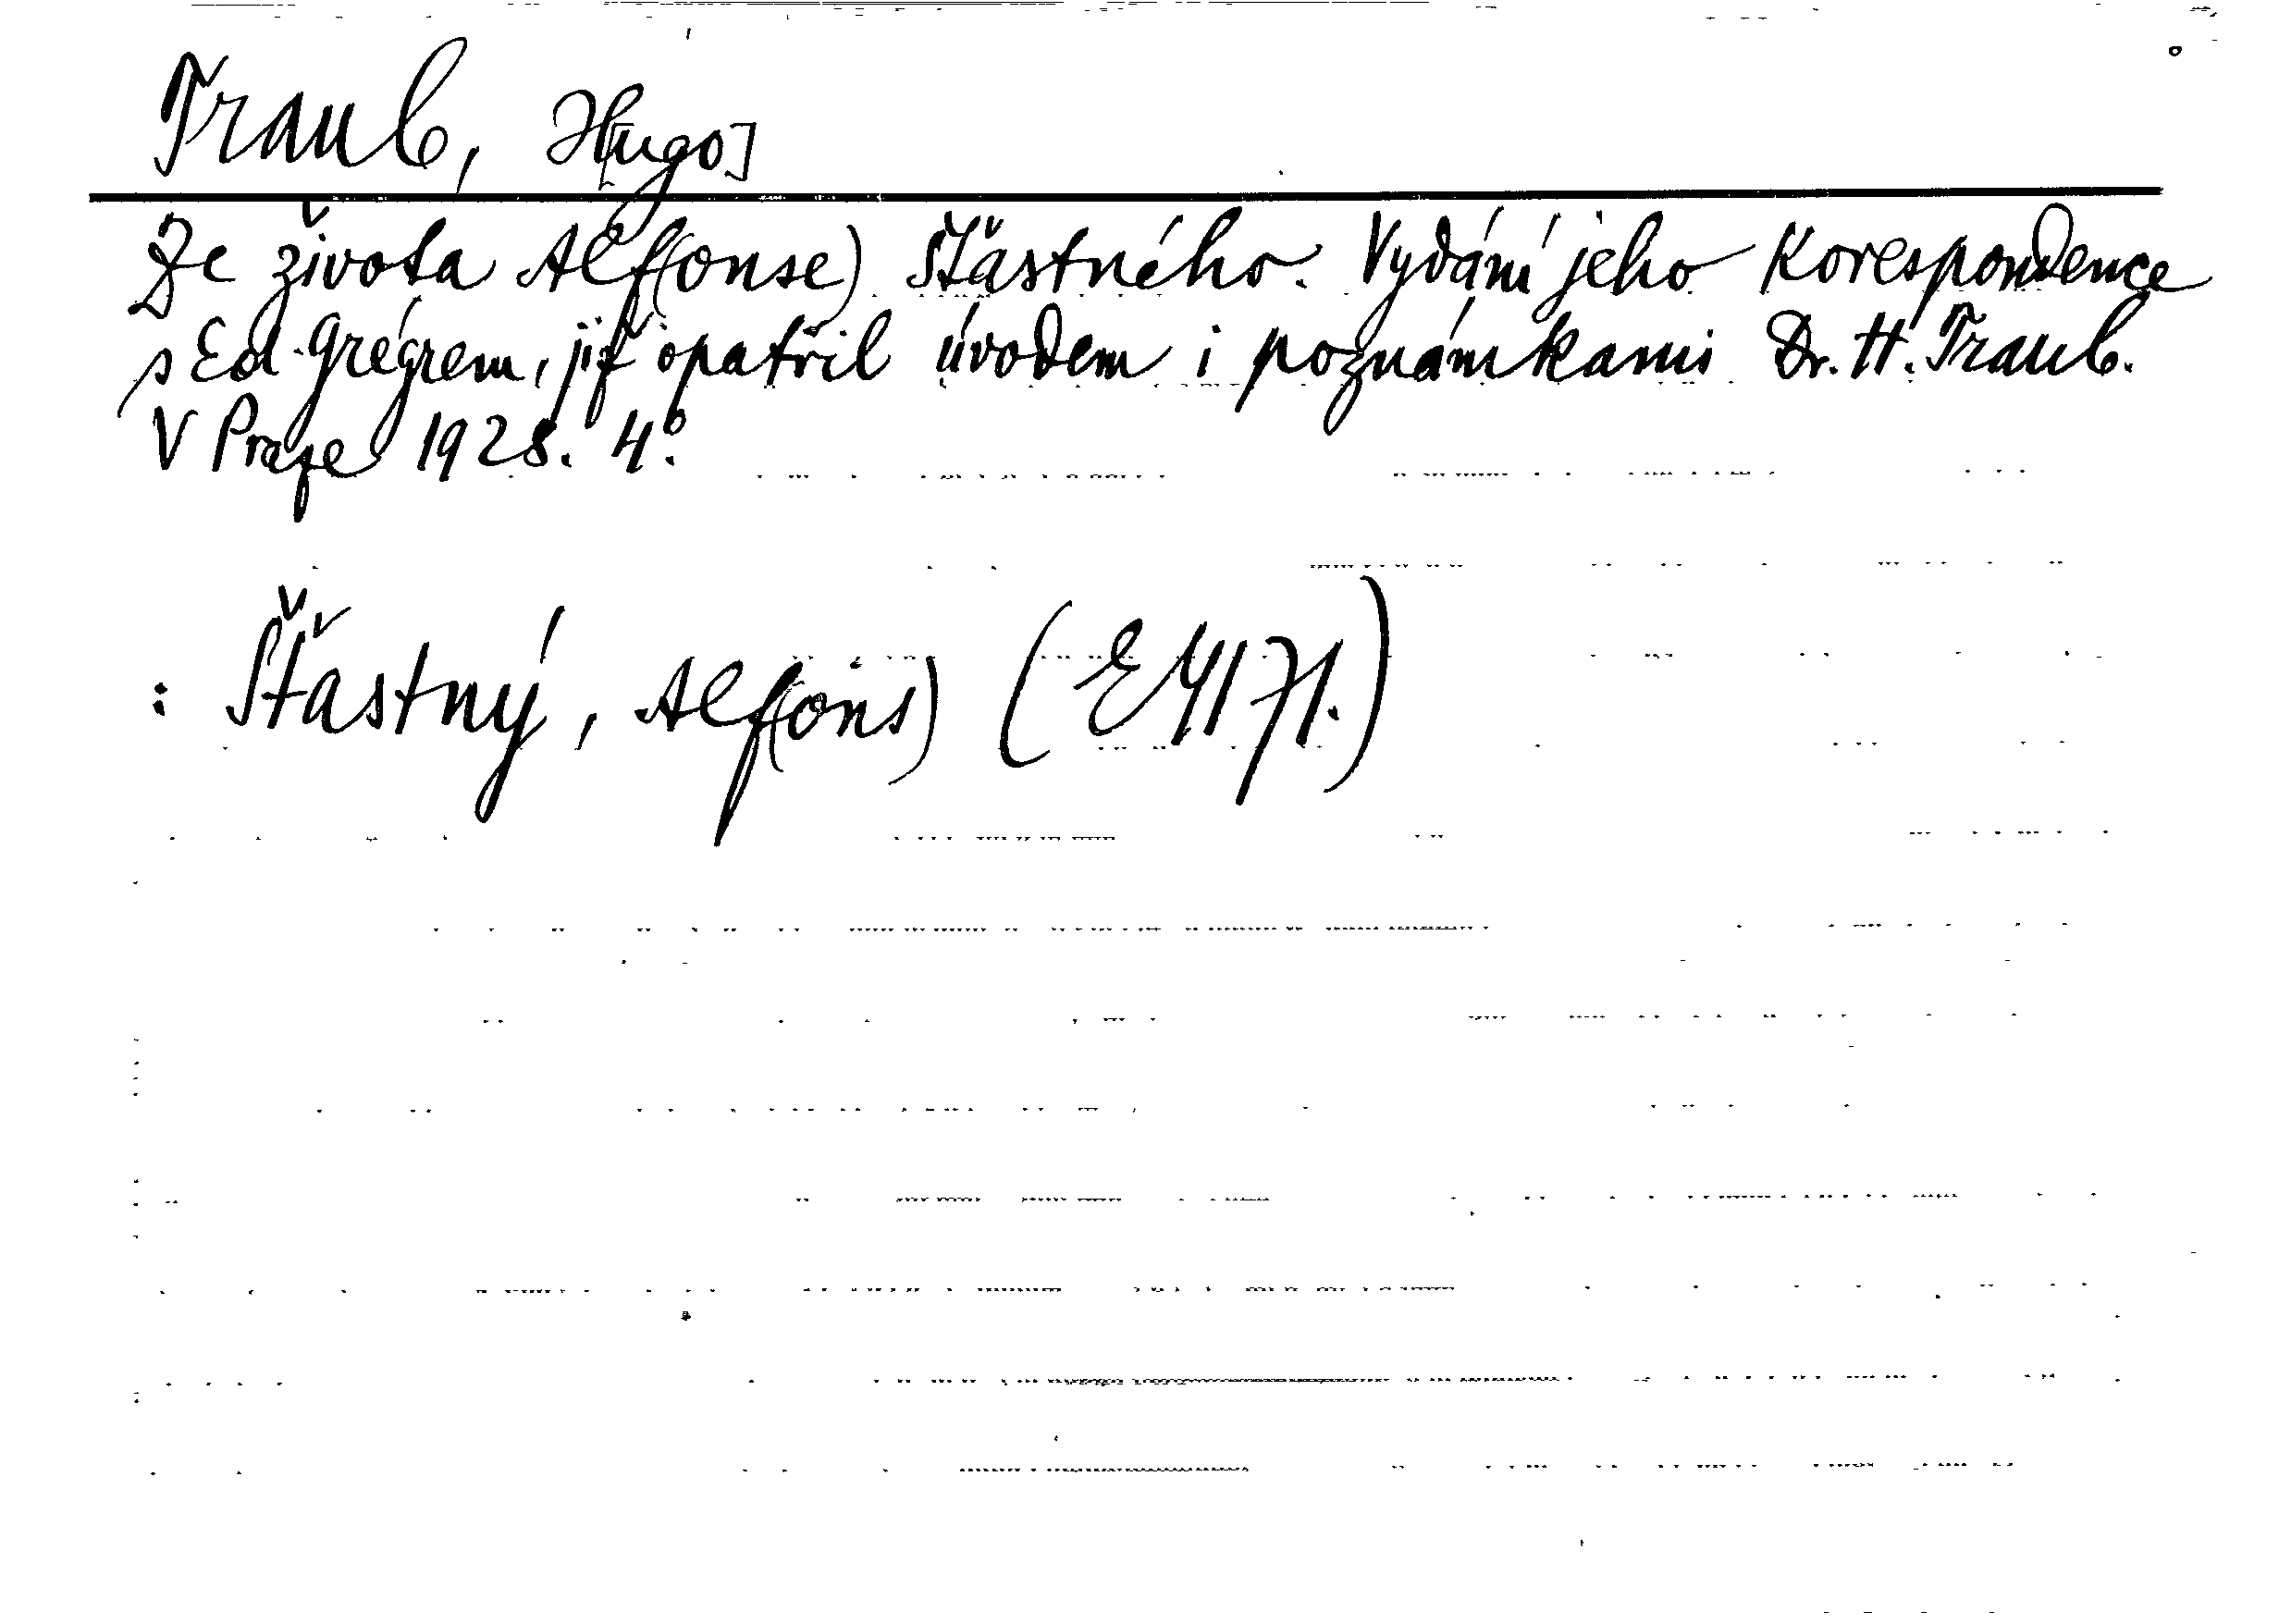 Traub, H[ugo]
Ze života Alf(onse) Šťastného. Vydání jeho korespondence
s Ed. Grégrem, již opatřil úvodem i poznámkami Dr. H. Traub.
V Praze 1928. 4°.
: Šťastný, Alf(ons) (E 4171.)